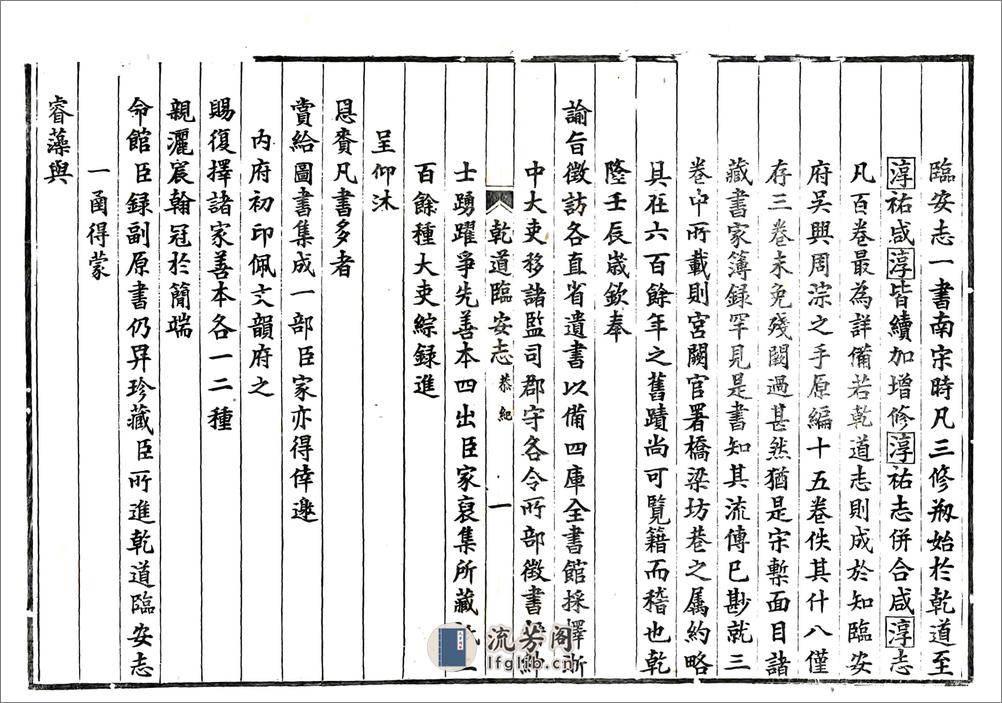 臨安志一書南宋時凡三修刱始於乾道至
淳祐咸淳皆續加增修淳祐志併合咸淳志
凡百卷最為詳備若乾道志則成於知臨安
府吳興周淙之手原編十五卷佚其什八僅
存三卷未免殘闕過甚然猶是宋槧面目諸
藏書家簿録罕見是書知其流傳已尠就三
卷中所載則宮闕官署橋梁坊巷之属約略
具在六百餘年之舊蹟尚可覽籍而稽也乾
隆壬辰歲欽奉
諭旨徵訪各直省遺書以備四庫全書館採擇浙
中大吏移諸監司郡守各令所部徵書
士踴躍爭先善本四出臣家裒集所藏
百餘種大吏綜録進
呈仰沐
恩賚凡書多者
賞給圖書集成一部臣家亦得倖邀
內府初印佩文韻府之
賜復擇諸家善本各一二種
親灑宸翰冠於簡端
命館臣録副原書仍昇珍藏臣所進乾道臨安志
一函得蒙
睿藻與
乾道臨安志 恭紀 一
流芳阁
lfglib.cn